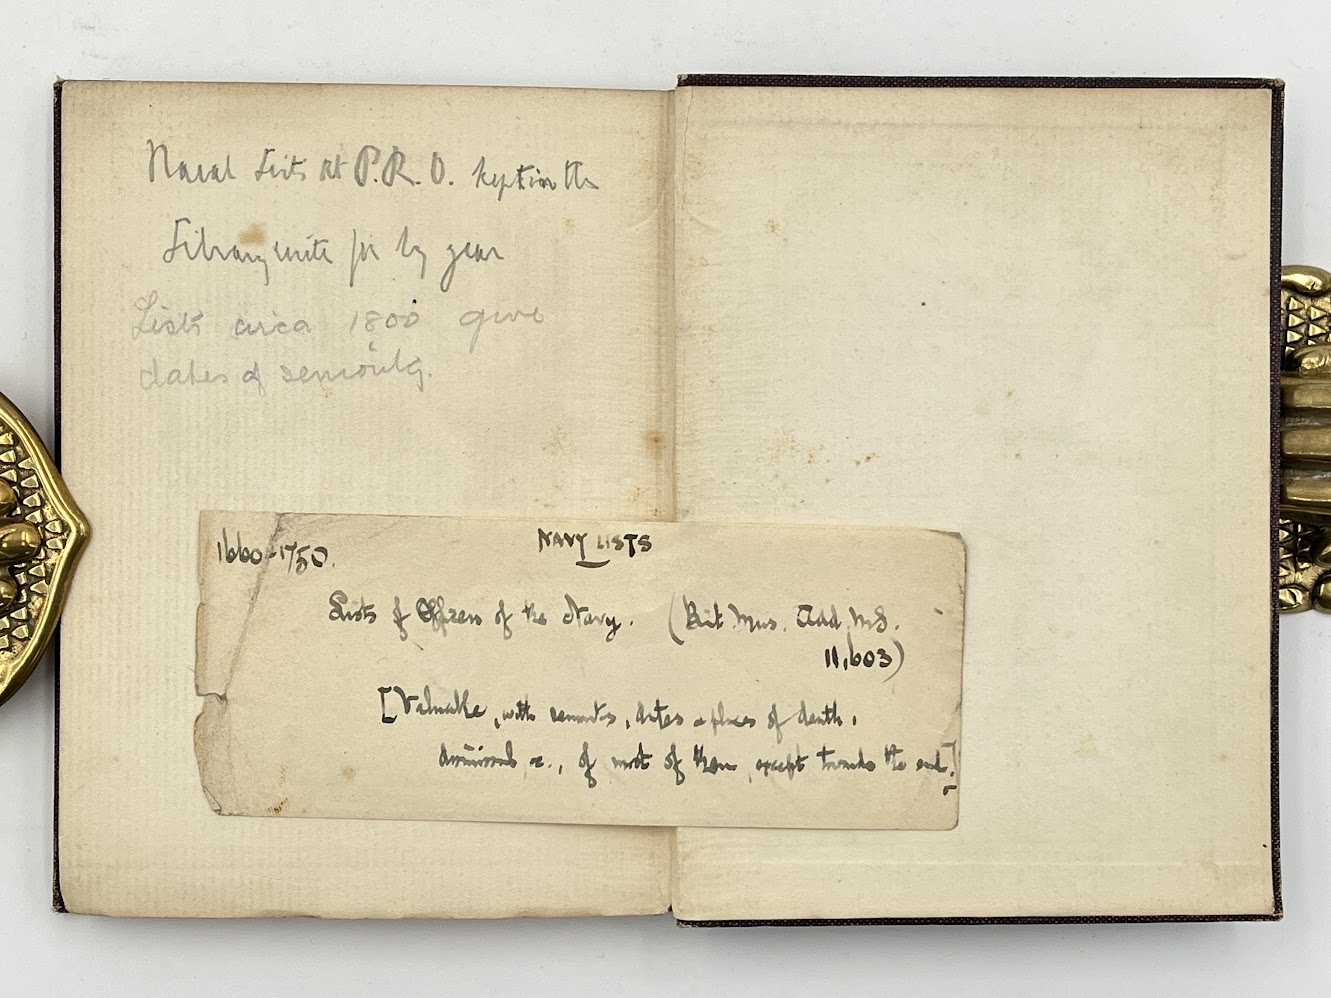 Naval Lists at P.R.O. kept in the
Library write for by year
Lists circa 1800 give
dates of seniority.
1660-1750.
NAVY LISTS
Lists of Officers of the Navy. (Brit. Mus. Add. MS.
11,603)
[Valuable, with remarks, dates & places of death,
dismissal &c., of most of them, except towards the end.]